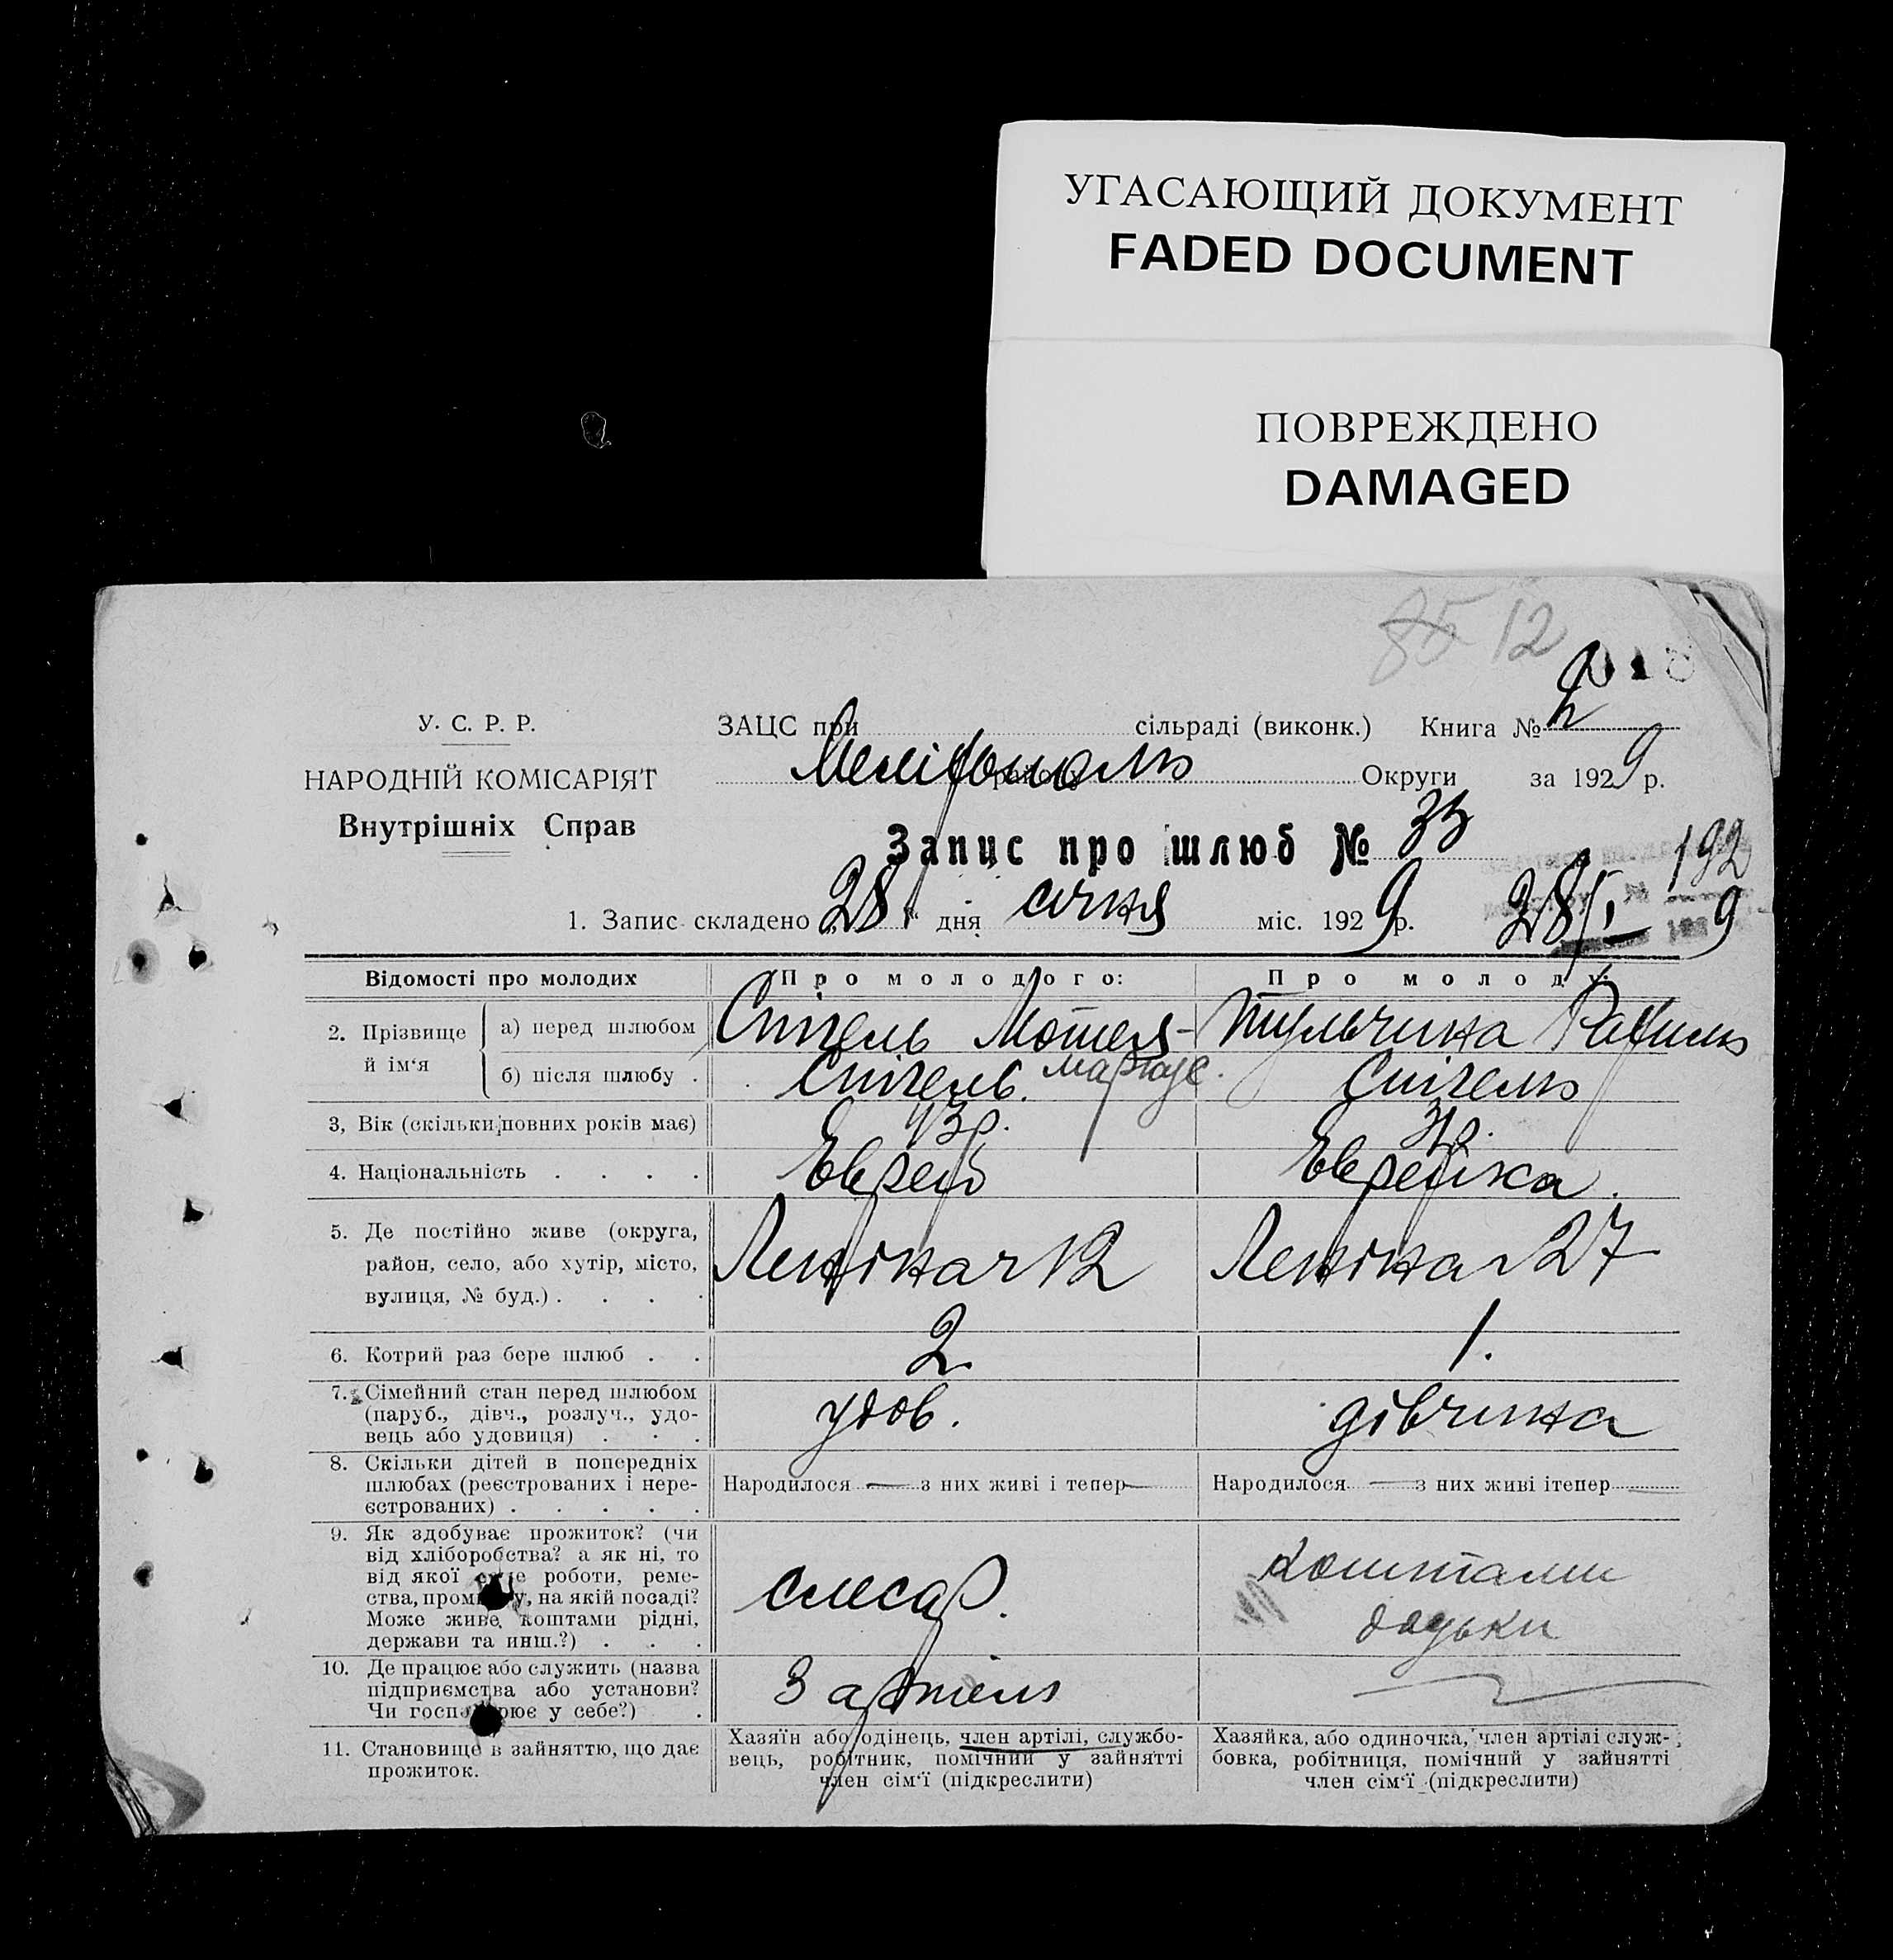 УГАСАЮЩИЙ ДОКУМЕНТ
FADED DOCUMENT
ПОВРЕЖДЕНО
DAMAGED
85 12
У. С. Р. Р.
НАРОДНІЙ КОМІСАРІЯТ
Внутрішніх Справ
ЗАЦС при сільраді (виконк.) Книга № 2
Мелітополь району Округи за 1929 р.
Запис про шлюб № 33
192
1. Запис складено „28“ дня січня міс. 1929 р. 28/I 9
Відомості про молодих
Про молодого:
Про молоду:
2. Прізвище й ім‘я
а) перед шлюбом
Спігель Мотель-
Маркус.
Тульчина Рахиль
б) після шлюбу .
Спігель.
Спігель
3, Вік (скільки повних років має)
43р.
31р.
4. Національність . . . .
Еврей
Еврейка.
5. Де постійно живе (округа,
район, село, або хутір, місто,
вулиця, № буд.) . . . .
Леніна 12
Леніна 27
6. Котрий раз бере шлюб . .
2
1.
7. Сімейний стан перед шлюбом
(паруб., дівч., розлуч., удо-
вець або удовиця) . . .
удов.
дівчина
8. Скільки дітей в попередніх
шлюбах (реєстрованих і нере-
єстрованих) . . . . .
Народилося — з них живі і тепер —
Народилося — з них живі ітепер
9. Як здобуває прожиток? (чи
від хліборобства? а як ні, то
від якої роботи, реме-
ства, на якій посаді?
Може живе коштами рідні,
держави та инш.?) . . .
слесар.
Коштами
дядьки
10. Де працює або служить (назва
підприємства або установи?
Чи у себе?) .
З артіль
11. Становище в зайняттю, що дає
прожиток.
Хазяїн або одінець, член артілі, службо-
вець, робітник, помічний у зайнятті
член сім‘ї (підкреслити)
Хазяйка, або одиночка, член артілі служ-
бовка, робітниця, помічний у зайнятті
член сім‘ї (підкреслити)